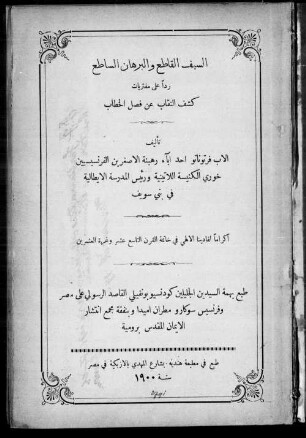 السيف القاطع والبرهان الساطع
رداً على مفتريات
كشف النقاب عن فصل الخطاب
تأليف
الاب فرتوناتو احد اباء رهبنة الاصغرين الفرنسيسيين
خوري الكنيسة اللاتينية ورئيس المدرسة الايطالية
في بني سويف
اكراماً لفادينا الالهي في خاتمة القرن التاسع عشر وغرة العشرين
طبع بهمة السيدين الجليلين كودنسيو بونفيلي القاصد الرسولي على مصر
وفرنسيس سوكارو مطران اميدا وبنفقة مجمع انتشار
الايمان المقدس برومية
طبع في مطبعة هندية بشارع المهدي بالازبكية في مصر
سنة ١٩٠٠